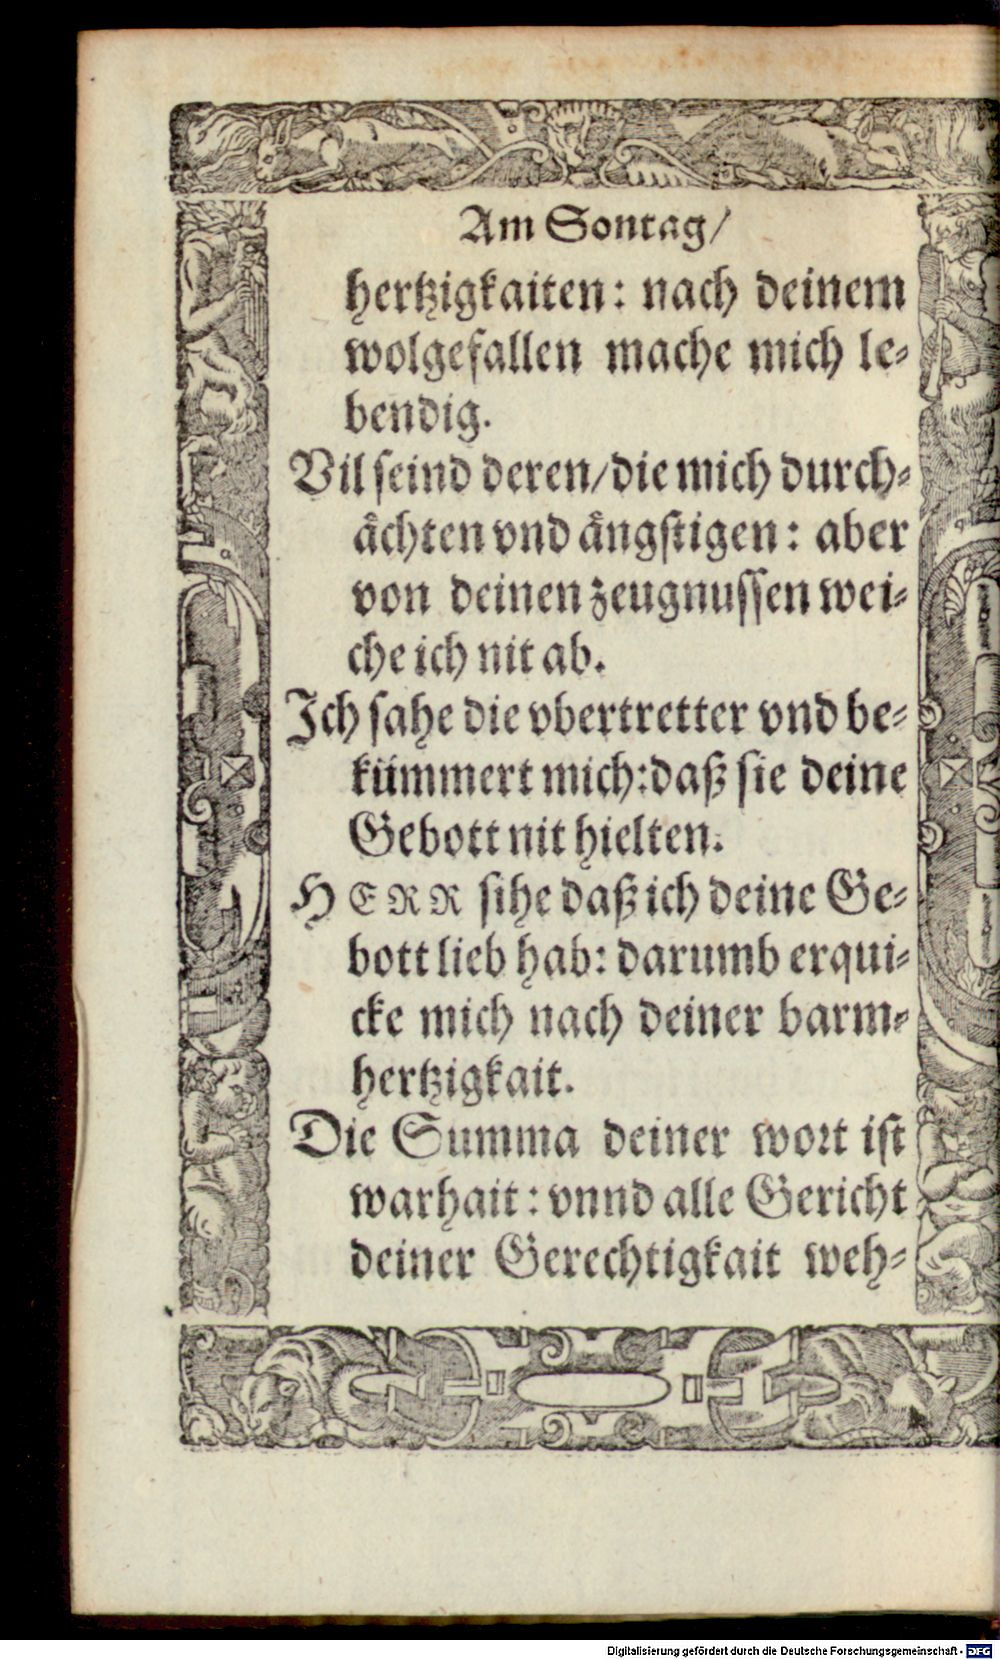 Am Sontag/
hertzigkaiten: nach deinem
wolgefallen mache mich le-
bendig.
Vil seind deren/die mich durch-
ächten vnd ängstigen: aber
von deinen zeugnussen wei-
che ich nit ab.
Ich sahe die vbertretter vnd be-
kümmert mich:daß sie deine
Gebott nit hielten.
HERR sihe daß ich deine Ge-
bott lieb hab: darumb erqui-
cke mich nach deiner barm-
hertzigkait.
Die Summa deiner wort ist
warhait: vnnd alle Gericht
deiner Gerechtigkait weh-
Digitalisierung gefördert durch die Deutsche Forschungsgemeinschaft - DFG